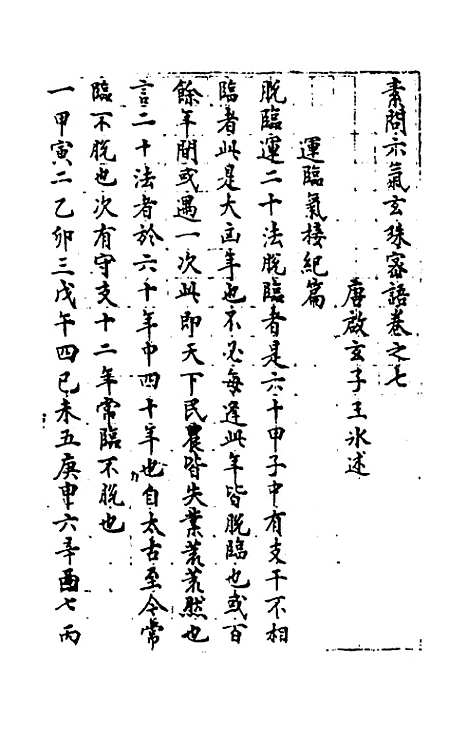 素問六氣玄珠密語卷之七
唐啟玄子王冰述
運臨氣接紀篇
脫臨運二十法脫臨者是六十甲子中有支干不相
臨者此是大凶年也不必每逢此年皆脫臨也或百
餘年間或遇一次此即天下民農皆失業荒荒然也
言二十法者於六十年中四十年也自太古至今常
臨不脫也次有守支十二年常臨不脫也
一甲寅二乙卯三戊午四己未五庚申六辛酉七丙